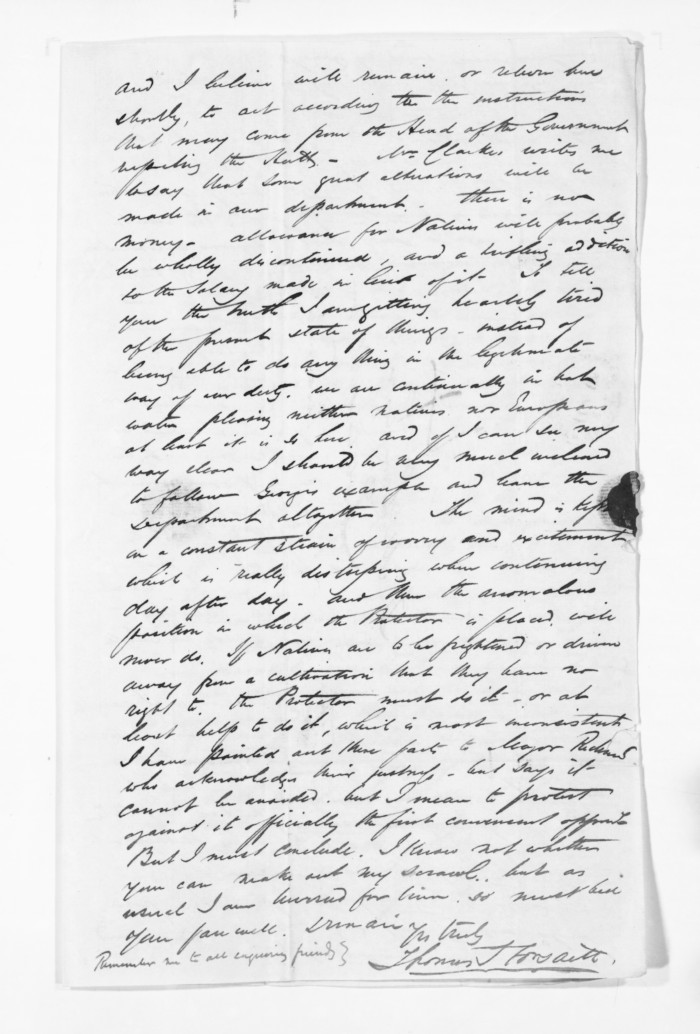 and I believe will remain or return here
shortly, to act according the the instructions
that may come from the Head of the Government
respecting the Hutt. - Mr. Clarke writes me
to say that some great alterations will be
made in our department. - there is no
money - allowance for Natives will probably
be wholly discontinued, and a trifling addition
to the Salary made in lieu of it To tell
you the truth I am getting heartily tired
of the present state of things - instead of
being able to do any thing in the legitimate
way of our duty, we are continually in hot
water pleasing neither natives nor Europeans
at least it is so here and if I can see my
way clear I should be very much inclined
to follow George's example and leave the
Department altogether. The mind is kept
in a constant strain of worry and excitement
which is really distressing when continuing
day after day - and then the anomalous
position in which the Protector is placed will
never do. If Natives are to be frightened or driven
away from a cultivation that they have no
right to, the Protector must do it - or at
least help to do it, which is most inconsistent
I have pointed out these facts to Major Richmd
who acknowledges their justness - but says it
cannot be avoided. but I mean to protest
against it officially the first convenient opportu
But I must conclude. I know not whether
you can make out my scrawl, but as
usual I am hurried for time so must bid
you farewell. I remain Yrs truly
Remember me to all enquiring friends}
Thomas S Forsaith.